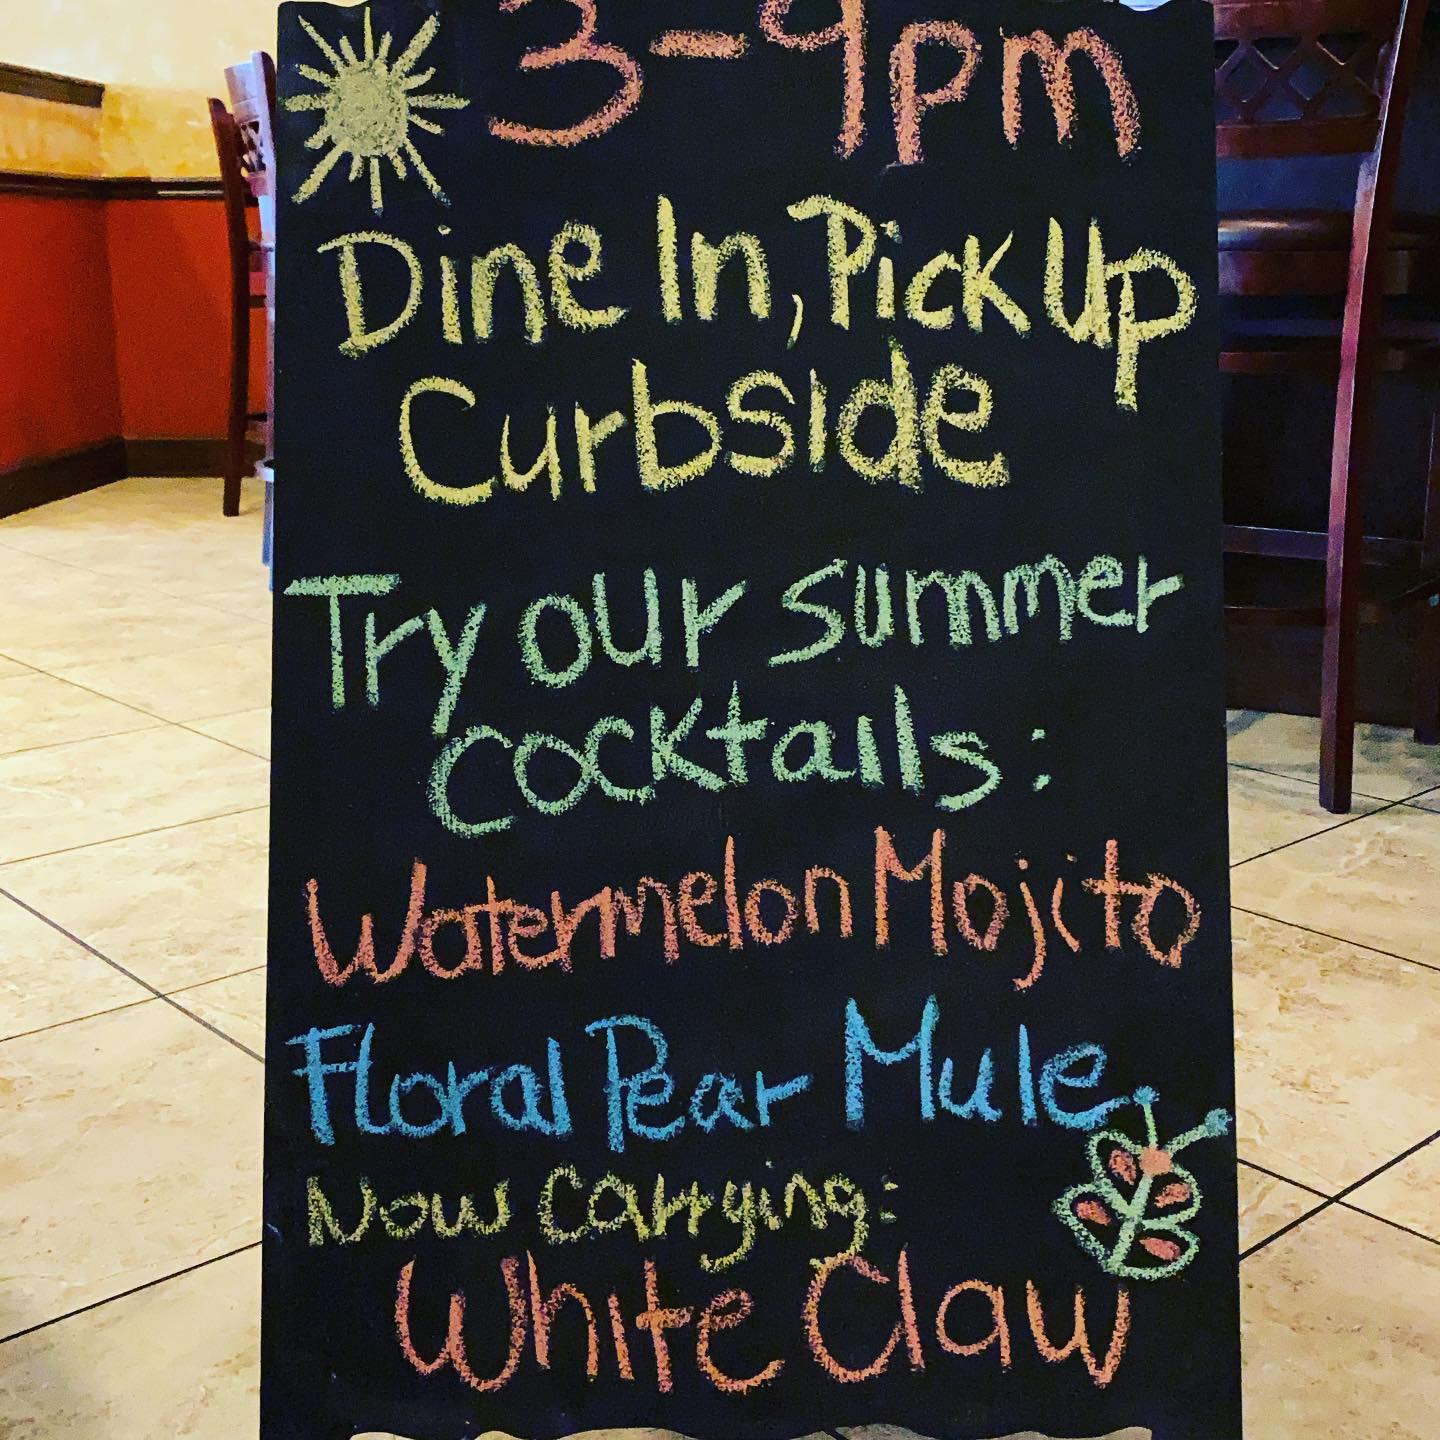 3-9pm
Dine In, Pick Up
Curbside
Try our summer
cocktails:
Watermelon Mojito
Floral Pear Mule
Now Carrying:
White Claw